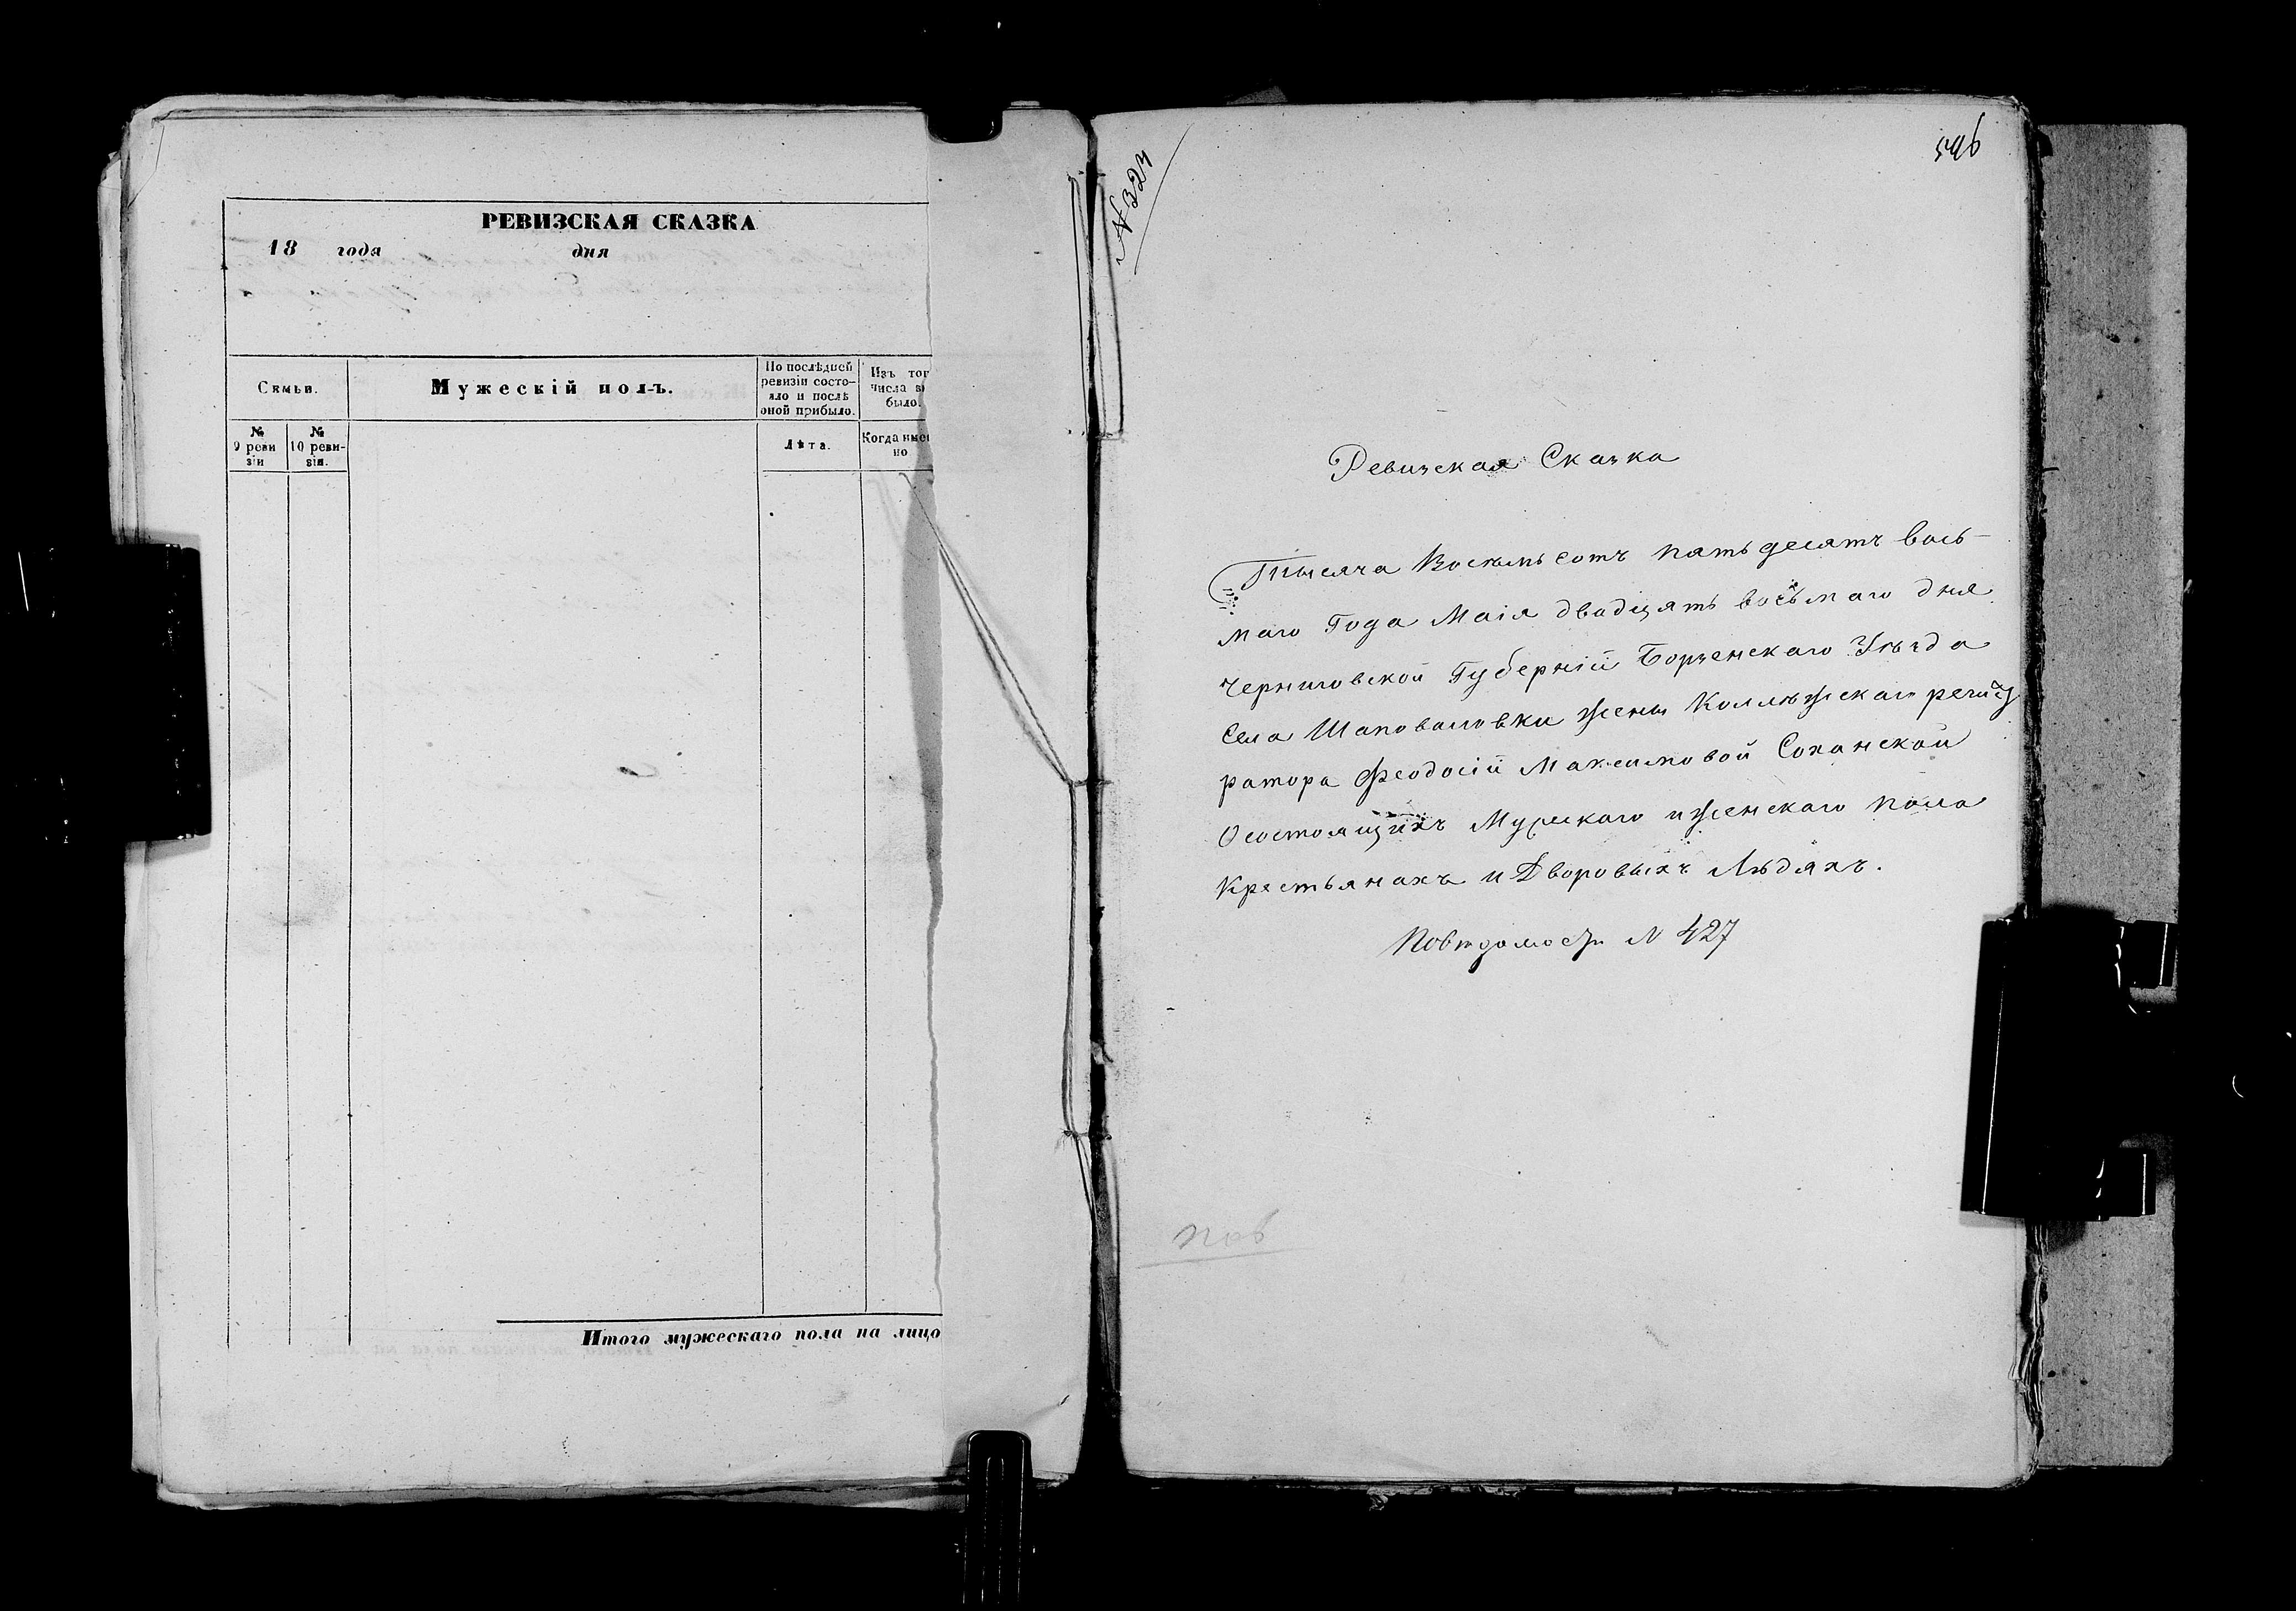 РЕВИЗСКАЯ СКАЗКА
18 года дня
Семьи.
Мужескій полъ.
По послѣдней
ревизіи состо-
яло и послѣ
оной прибыло.
Изъ тог
числа вы
было.
№
9 реви
зіи
№
10 реви-
зіи.
Лѣта.
Когда име
но
Итого мужескаго пола на лицо
№ 324
546
Ревизская Сказка
Тысяча Восемьсотъ пятьдесятъ вось-
маго Года Маія двадцять восьмаго дня
Черниговской Губерніи Борзенскаго Уѣзда
Села Шаповаловки жены Коллѣжскаго регист
ратора Феодосіи Максимовой Соханской
О состоящихъ Мужескаго и женскаго пола
Крестьянахъ и Дворовыхъ Людяхъ.
По вѣдомости № 427
пов